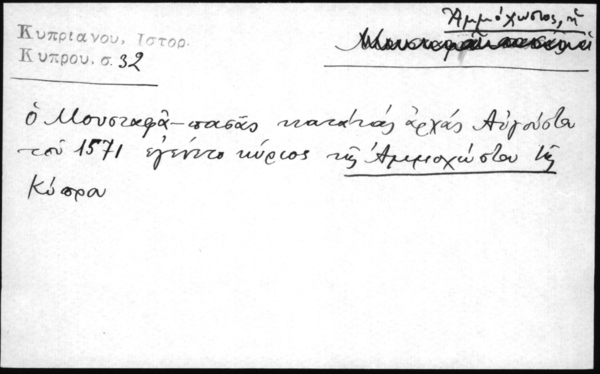 Κυπριανου, Ιστορ.
Κυπρου. σ. 32
Ἀμμόχωστος, ἡ
ὁ Μουσταφᾶ-πασᾶς κατὰ τὰς ἀρχὰς Αὐγούστου
τοῦ 1571 ἐγένετο κύριος τῆς Ἀμμοχώστου τῆς
Κύπρου